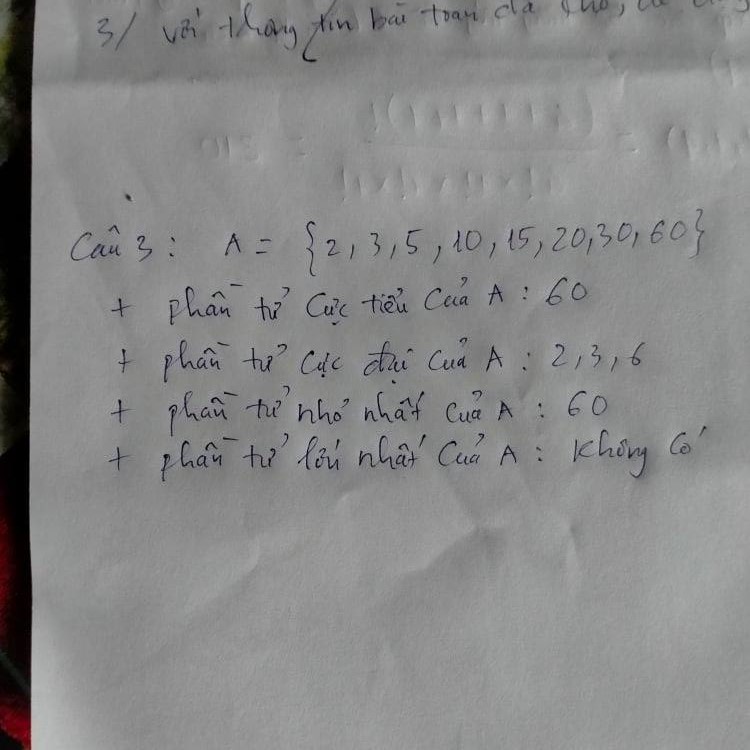 3/ với thông tin bài toán đã cho,
Câu 3: A = {2, 3, 5, 10, 15, 20, 30, 60}
+ phần tử cực tiểu của A : 60
+ phần tử cực đại của A : 2, 3, 6
+ phần tử nhỏ nhất của A : 60
+ phần tử lớn nhất của A : không có